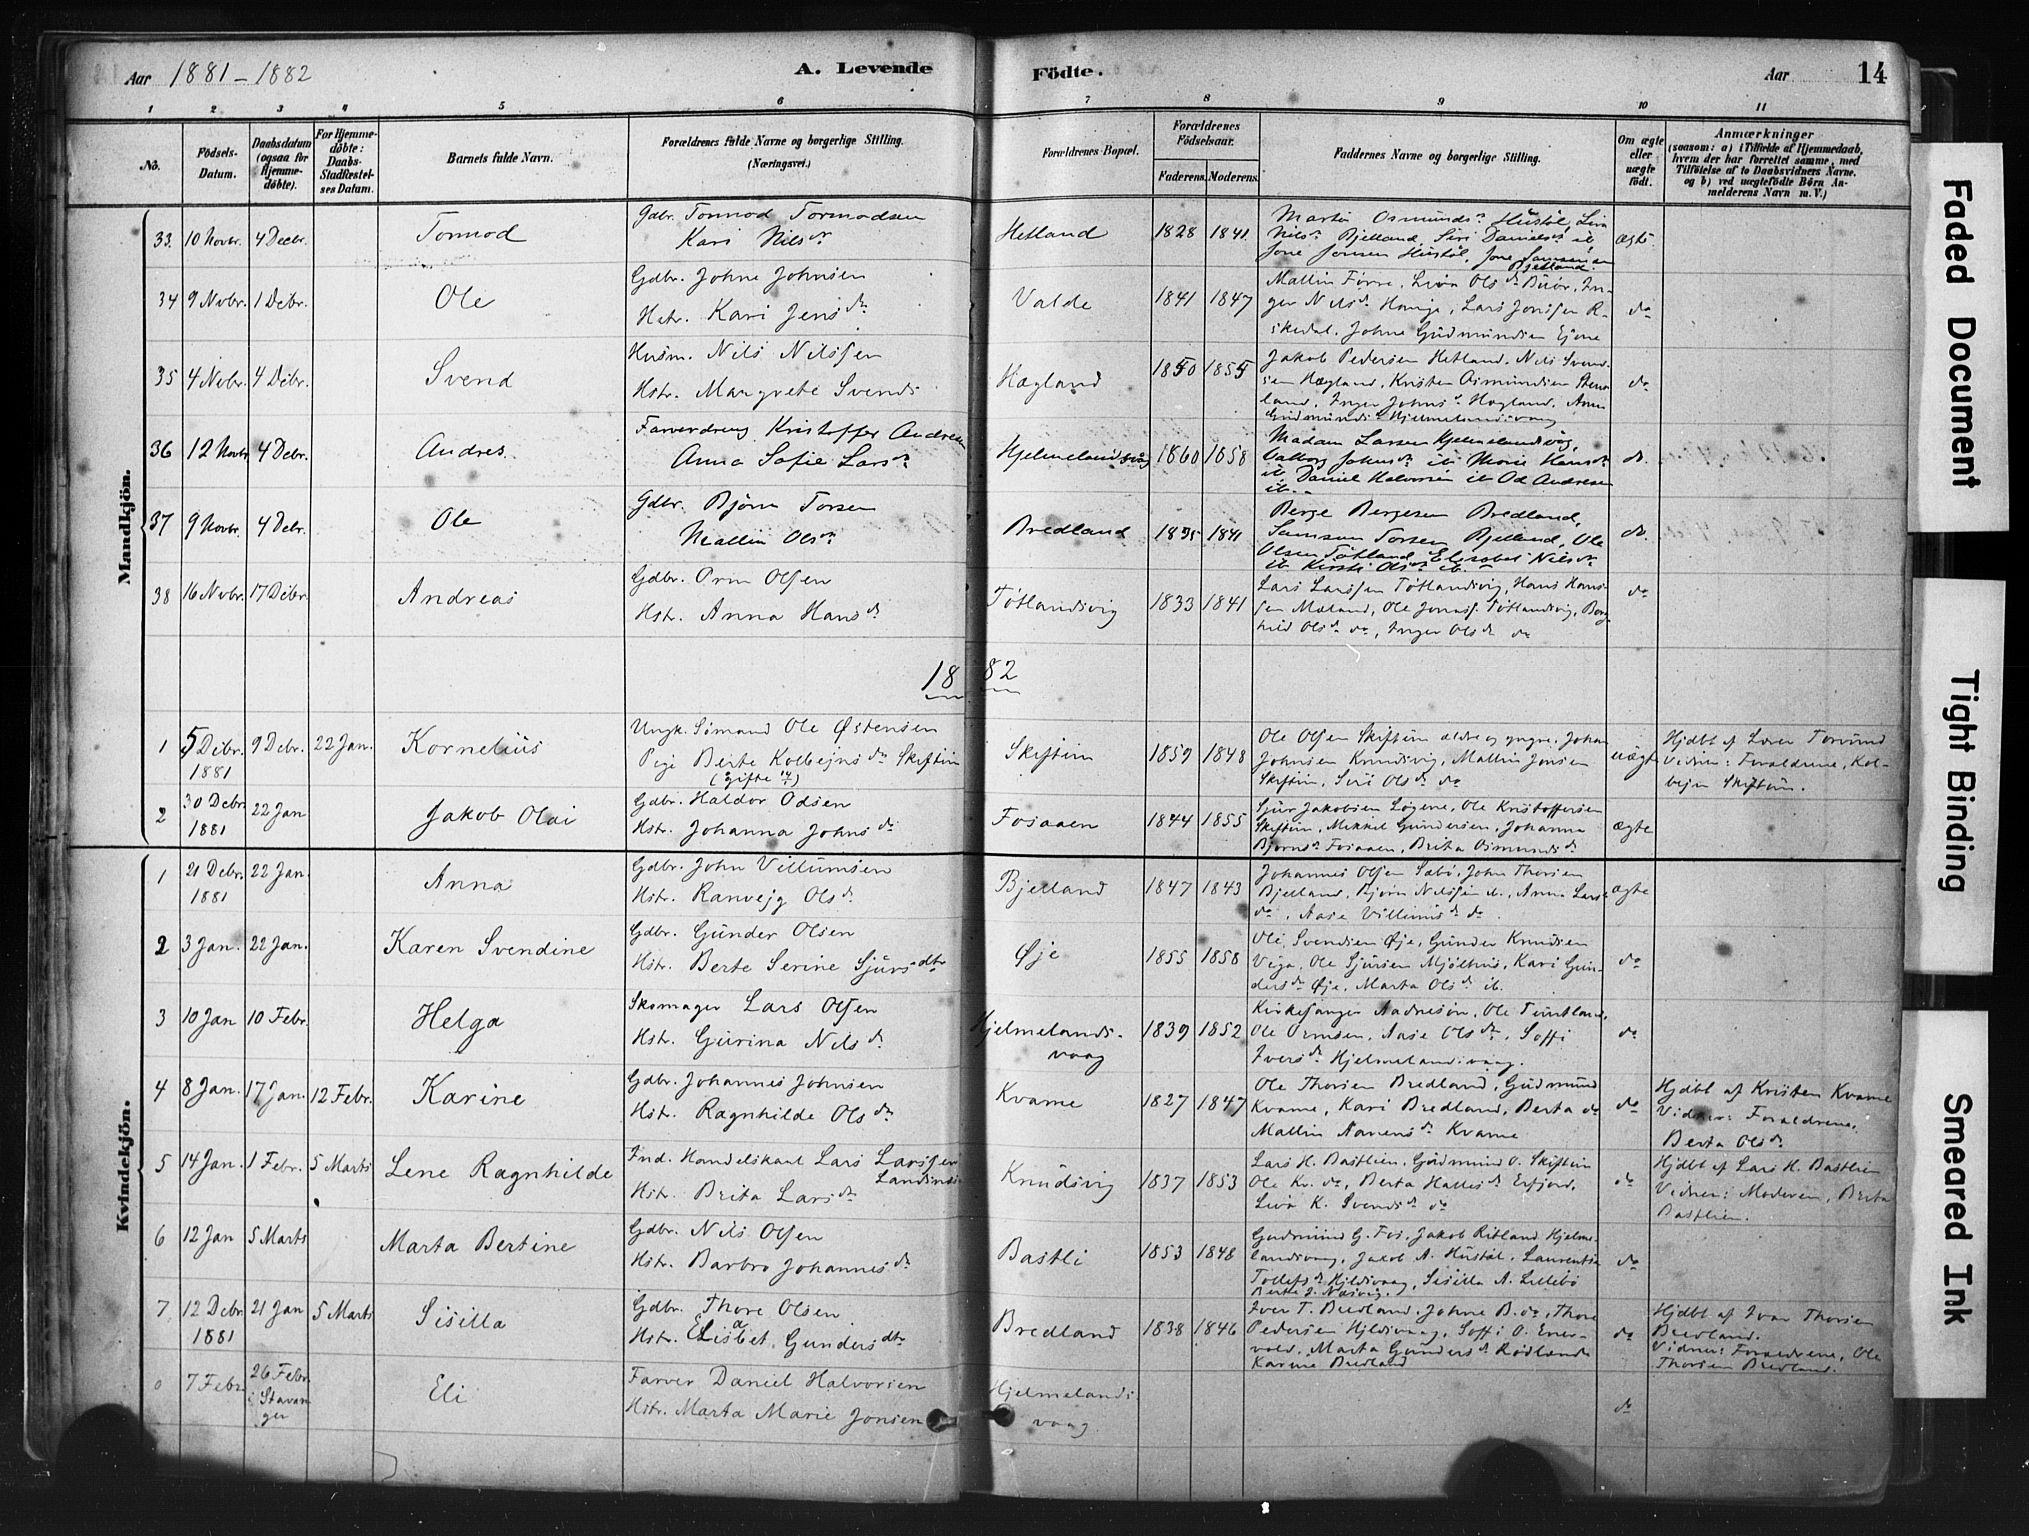 Aar 1881-1882
A. Levende Födte.
Aar
14
1 2 3 4 5 6 7 8 9 10 11
No.
Födsels-Datum.
Daabsdatum (ogsaa for Hjemme-döbte).
For Hjemme-döbte: Daabs-Stadfæstel-ses Datum.
Barnets fulde Navn.
Forældrenes fulde Navne og borgerlige Stilling. (Næringsvei.)
Forældrenes Bopæl.
Forældrenes Födselsaar.
Faderens. Moderens.
Faddernes Navne og borgerlige Stilling.
Om ægte eller uægte födt.
Anmærkninger
(saasom: a) i Tilfælde af Hjemmedaab, hvem der har forrettet samme, med Tilföielse af to Daabsvidners Navne. og b) ved uægtefödte Börn An-melderens Navn m. V.)
Mandkjön.
33. 10 Novbr. 4 Decbr. Tormod
Gdbr. Tormod Tormodsen
Kari Nilsdr
Hetland 1828 1841
Martin Osmunds. Hustøl, Liva
Nilsdr Bjelland, Siri Danielsdr ib,
Jone Jonsen Hustøl, Jone Samsonsen
Bjelland.
ægte
34 9 Novbr. 1 Debr. Ole
Gdbr. Johne Johnsen
Hstr. Kari Jensdr
Valde 1841 1847
Mallin Førre, Liva Olsdr Buør, In-
ger Nilsdr Hauge, Lars Jonssen R-
iskedal, Johne Gudmundsen Ejane
do
35 4 Novbr. 4 Debr. Svend
Husm. Nils Nilssen
Hstr. Margrete Svends
Hægland 1850 1855
Jakob Pedersen Hetland, Nils Svend-
sen Hægland, Kristen Osmundsen Stens-
land, Inger Johnsdr Hægland, Anna
Gudmundsdr Hjelmelandsvaag
do
36 12 Novbr 4 Debr. Andres
Farverdreng Kristoffer Andresen
Anna Sofie Larsdr
Hjelmelandsvåg 1860 1858
Madam Larsen Hjelmelandsvåg,
Valborg Johnsdr ib Marie Hansdr
ib, Daniel Halvorsen ib Od Andresen
ib.
do.
37 9 Novbr. 4 Debr. Ole
Gdbr. Bjørn Torsen
Mallin Olsdr
Bredland 1835 1841
Berge Bergesen Bredland,
Samson Torsen Bjelland, Ole
Olsen Tøtland, Elisabet Nilsdr
ib Kirsti Olsdr ib.
do.
38 16 Novbr. 17 Debr. Andreas
Gdbr. Orm Olsen
Hstr. Anna Hansdr
Tøtlandsvig 1833 1841
Lars Larssen Tøtlandsvig, Hans Hans-
sen Mæland, Ole Jonass. Tøtlandsvig, Borg-
hild Olsdr do, Inger Olsdr do
do
1882
1 5 Debr. 1881 9 Debr. 22 Jan. Kornelius
Ungk. Sømand Ole Østensen
Pige Berte Kolbejnsdr Skiftun
(gifte)
Skiftun 1859 1848
Ole Olsen Skiftun ældre og yngre, Johan
Johnsen Knudsvig, Mallin Jonsen
Skiftun, Siri Olsdr do
uægte
Hjdbt af Lærer Torsund
Vidner: Forældrene, Kol-
bejn Skiftun.
2 30 Debr. 1881 22 Jan Jakob Olai
Gdbr. Haldor Odsen
Hstr. Johanna Johnsdr
Fosaaen 1844 1855
Sjur Jakobsen Løgene, Ole Kristoffersen
Skiftun, Mikkel Gundersen, Johanna
Bjørnsdr Fosaaen, Brita Osmundsdr
ægte
Kvindekjön.
1 21 Debr. 1881 22 Jan. Anna
Gdbr. John Villumsen
Hstr. Ranvejg Olsdr
Bjelland 1847 1843
Johannes Olsen Sæbø, John Thorsen
Bjelland, Bjørn Nilssen do, Anna Lars-
do, Aase Villumsdr do.
ægte
2 3 Jan. 22 Jan. Karen Svendine
Gdbr. Gunder Olsen
Hstr. Berte Serine Sjursdtr
Øje 1855 1858
Ole Svendsen Øje, Gunder Knudsen
Viga, Ole Sjursen Mjølhus, Kari Gun-
dersdr Øje, Marta Olsdr ib.
do
3 10 Jan 10 Febr. Helga
Skomager Lars Olsen
Hstr. Gurina Nilsdr
Hjelmelands-
vaag 1839 1852
Kirkesanger Aadnesøn, Ole Tuntland,
Ole Ormsen, Aase Olsdr, Soffi
Iversdr Hjelmelandsvaag.
do
4 8 Jan. 17 Jan. 12 Febr. Karine
Gdbr. Johannes Johnsen
Hstr. Ragnhilde Olsdr
Kvame 1827 1847
Ole Thorsen Bredland, Gudmund
Kvame, Kari Bredland, Berta do
Mallin Aanensdr Kvame
do
Hjdbt af Kristen Kvame
Vidner: Forældrene,
Berta Olsdr
5 14 Jan. 1 Febr. 5 Marts Lene Ragnhilde
Fnd. Handelskarl Lars Larssen
Hstr. Brita Larsdr
Knudsvig 1837 1853
Lars H. Bastlien, Gudmund O. Skiftun
Ole Kr. do, Berta Hallesdr Erfjord,
Liva K. Svendsdr do
do
Hjdbt af Lars H. Bastlien
Vidner: Moderen, Berta
Bastlien.
6 12 Jan 5 Marts Marta Bertine
Gdbr. Nils Olsen
Hstr. Barbro Johannesdr
Bastli 1853 1848
Gudmund G. Fos, Jakob Ritland Hjelme-
landsvaag, Jakob A. Hustøl, Laurentse
Tollefsdr Hjldsvaag, Sisilla A. Lillebø
Berte J. Næsvig.
do
7 12 Debr. 1881 21 Jan 5 Marts Sisilla
Gdbr. Thore Olsen
Hstr. Elisabet Gundersdtr
Bredland 1838 1846
Iver T. Bredland, Johne B. do, Thore
Pedersen Hjldsvaag, Soffi O. Ener-
vold, Marta Gundersdr Rødlende
Karine Bredland
do
Hjdbt af Ivar Thorsen
Bredland.
Vidner: Forældrene, Ole
Thorsen Bredland.
0 7 Febr 26 Febr. i Stavan-
ger Eli
Farver Daniel Halvorsen
Hstr. Marta Marie Jonsen
Hjelmelands-
vaag.
do
Faded Document
Tight Binding
Smeared Ink